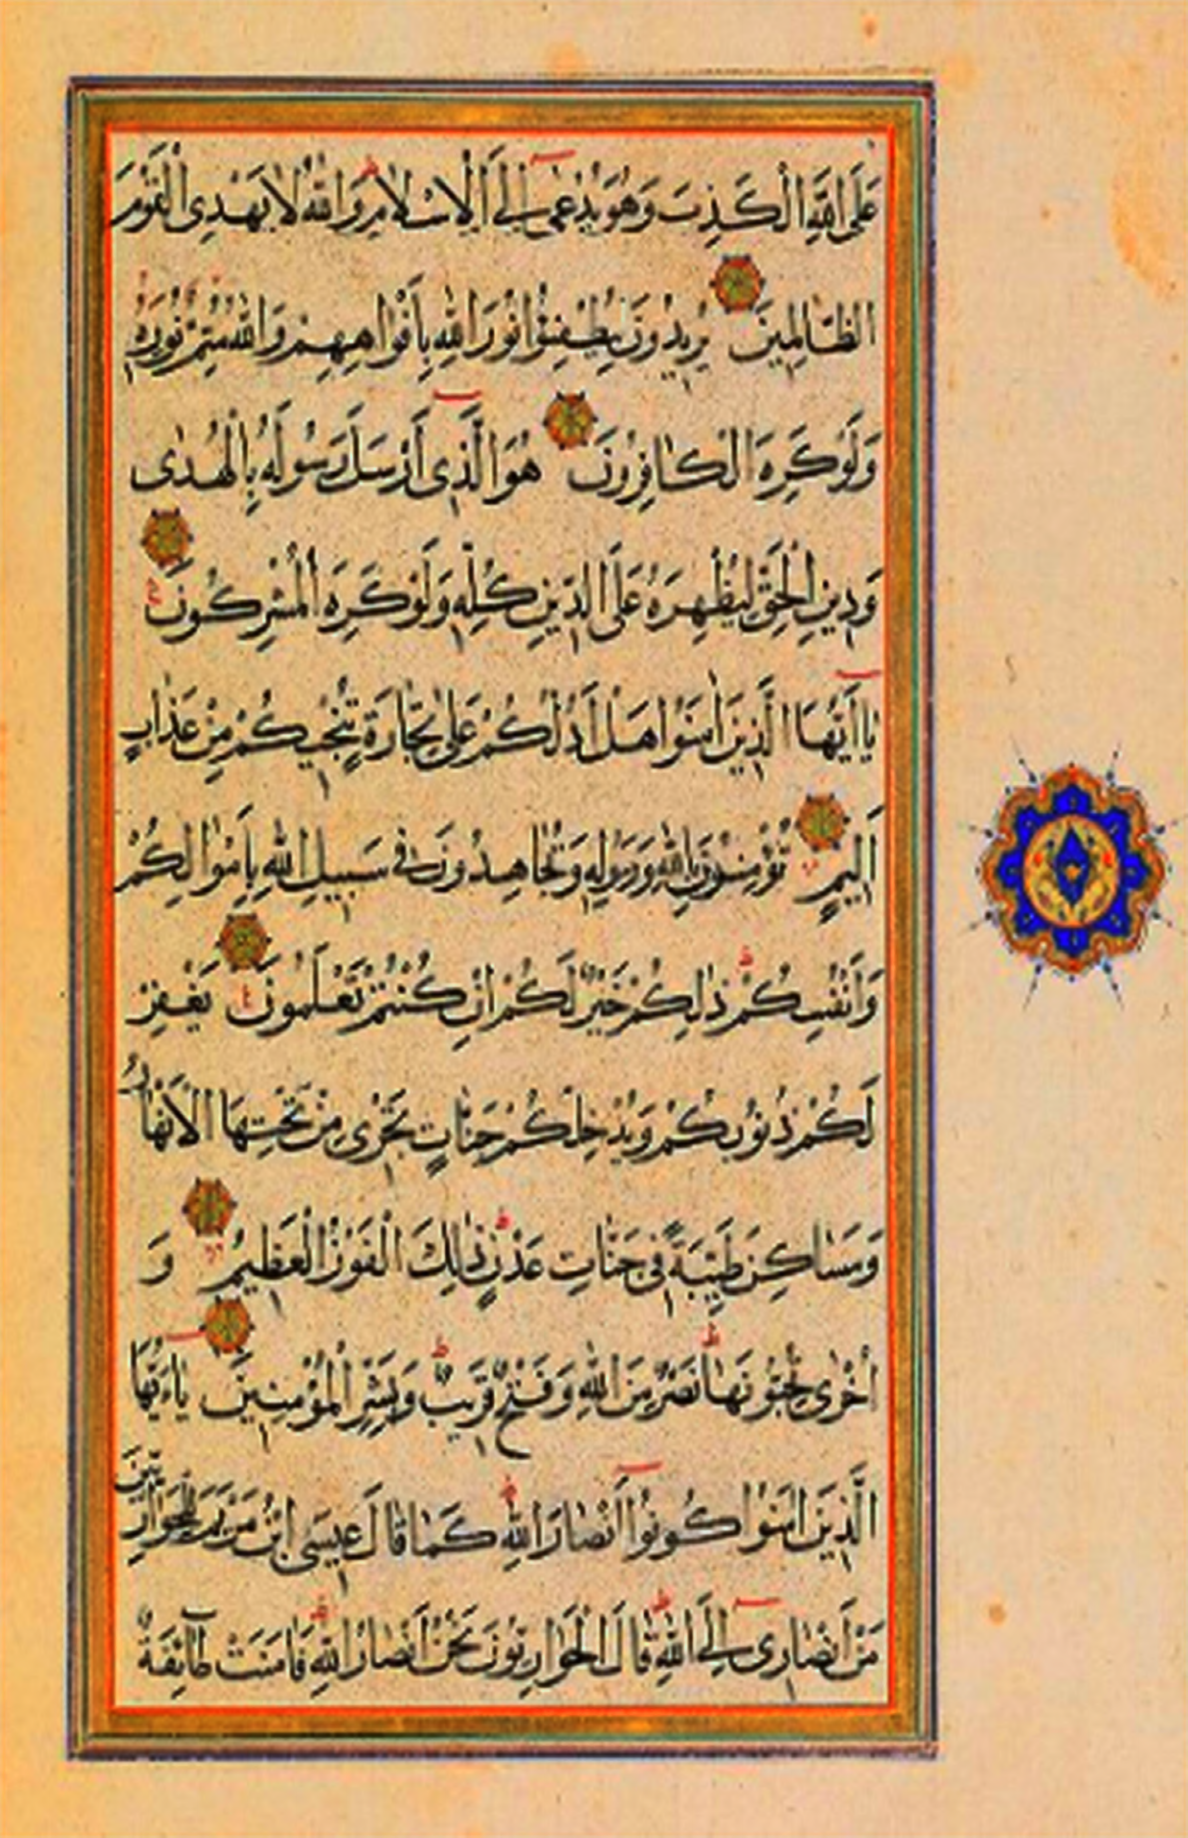 عَلَى اللَّهِ الْكَذِبَ وَهُوَ يُدْعٰى إِلَى الْإِسْلَامِ وَاللَّهُ لَا يَهْدِى الْقَوْمَ
الظَّالِمِينَ يُرِيدُونَ لِيُطْفِئُوا نُورَ اللَّهِ بِأَفْوَاهِهِمْ وَاللَّهُ مُتِمُّ نُورِهِ
وَلَوْ كَرِهَ الْكَافِرُونَ هُوَ الَّذِى أَرْسَلَ رَسُولَهُ بِالْهُدٰى
وَدِينِ الْحَقِّ لِيُظْهِرَهُ عَلَى الدِّينِ كُلِّهِ وَلَوْ كَرِهَ الْمُشْرِكُونَ
يَا أَيُّهَا الَّذِينَ اٰمَنُوا هَلْ أَدُلُّكُمْ عَلٰى تِجَارَةٍ تُنْجِيكُمْ مِنْ عَذَابٍ
أَلِيمٍ تُؤْمِنُونَ بِاللَّهِ وَرَسُولِهِ وَتُجَاهِدُونَ فِى سَبِيلِ اللَّهِ بِأَمْوَالِكُمْ
وَأَنْفُسِكُمْ ذٰلِكُمْ خَيْرٌ لَكُمْ إِنْ كُنْتُمْ تَعْلَمُونَ يَغْفِرْ
لَكُمْ ذُنُوبَكُمْ وَيُدْخِلْكُمْ جَنَّاتٍ تَجْرِى مِنْ تَحْتِهَا الْأَنْهَارُ
وَمَسَاكِنَ طَيِّبَةً فِى جَنَّاتِ عَدْنٍ ذٰلِكَ الْفَوْزُ الْعَظِيمُ وَ
أُخْرٰى تُحِبُّونَهَا نَصْرٌ مِنَ اللَّهِ وَفَتْحٌ قَرِيبٌ وَبَشِّرِ الْمُؤْمِنِينَ يَاءَيُّهَا
الَّذِينَ اٰمَنُوا كُونُوا أَنْصَارَ اللَّهِ كَمَا قَالَ عِيسَى ابْنُ مَرْيَمَ لِلْحَوَارِيِّينَ
مَنْ أَنْصَارِى إِلَى اللَّهِ قَالَ الْحَوَارِيُّونَ نَحْنُ أَنْصَارُ اللَّهِ فَاٰمَنَتْ طَائِفَةٌ